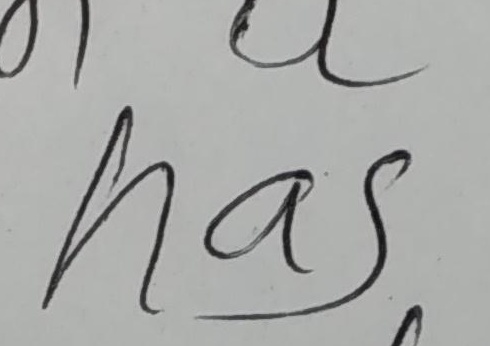 a
has